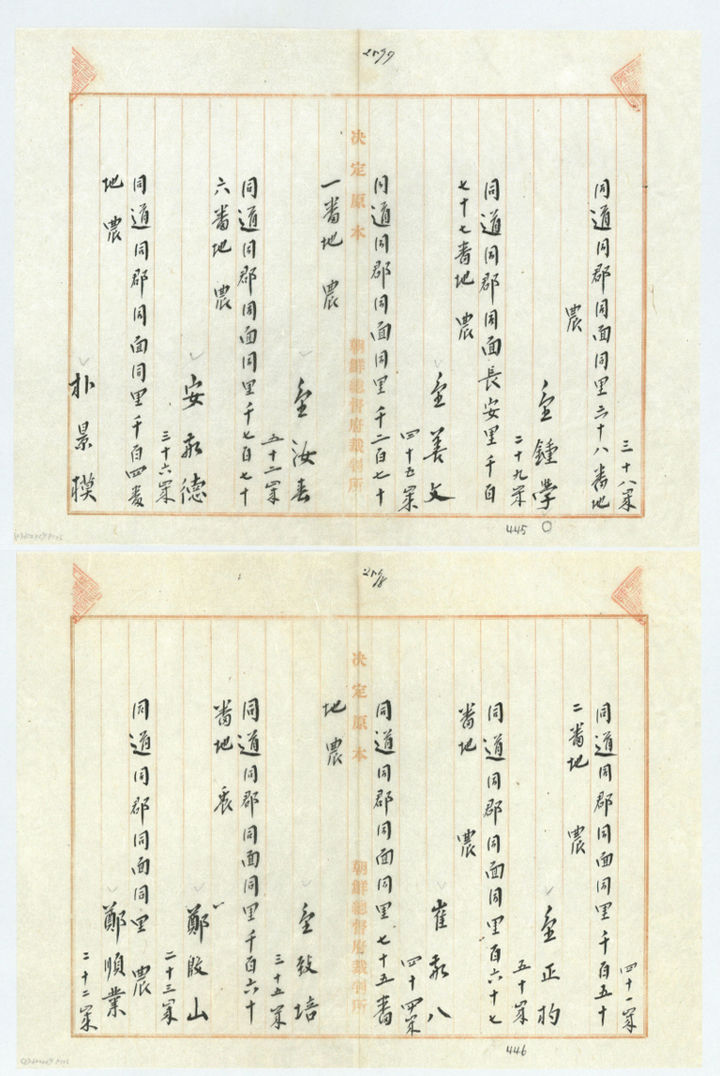 三十八歲
同道同郡同面同里六十八番地
農
金鍾學
二十九歲
同道同郡同面長安里千百
七十七番地 農
金善文
四十五歲
同道同郡同面同里千二百七十
決定原本 朝鮮總督府裁判所
一番地 農
金汝春
五十二歲
同道同郡同面同里千七百七十
六番地 農
安永德
三十六歲
同道同郡同面同里千百四番
地 農
朴景模
445
四十一歲
同道同郡同面同里千百五十
二番地 農
金正杓
五十歲
同道同郡同面同里百六十七
番地 農
崔永八
四十四歲
同道同郡同面同里七十五番
決定原本 朝鮮總督府裁判所
地 農
金致培
三十五歲
同道同郡同面同里千百六十
番地 農
鄭殷山
二十三歲
同道同郡同面同里 農
鄭順業
二十二歲
446